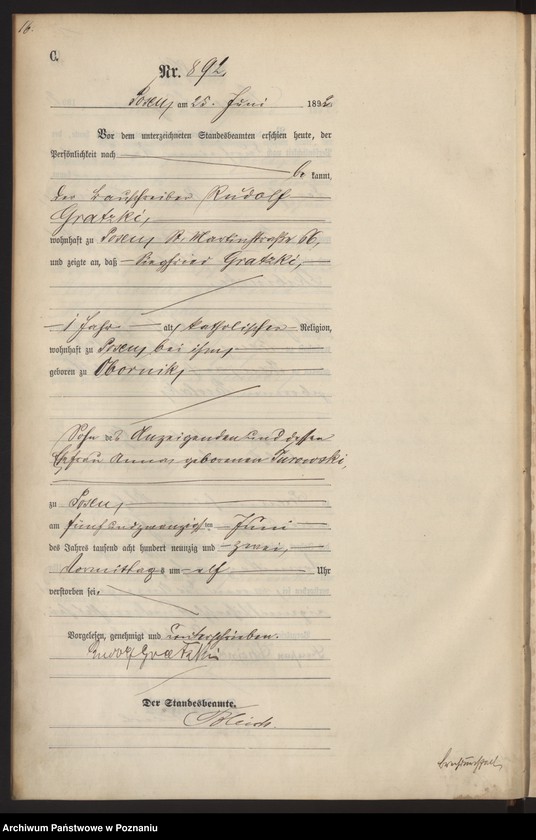 16.
C.
Nr. 892.
Posen, am 25. Juni 1892.
Vor dem unterzeichneten Standesbeamten erschien heute, der
Persönlichkeit nach
be kannt,
der Bauschreiber Rudolf
Gratzki,
wohnhaft zu Posen, St. Martinstraße 66,
und zeigte an, daß Siegfried Gratzki,
1 Jahr alt, katholischer Religion,
wohnhaft zu Posen, bei ihm,
geboren zu Obornik,
Sohn des Anzeigenden und dessen
Ehefrau Anna, geborenen Turowski,
zu Posen,
am fünfundzwanzigsten Juni
des Jahres tausend acht hundert neunzig und zwei,
Vormittags um elf Uhr
verstorben sei.
Vorgelesen, genehmigt und unterschrieben.
Rudolf Gratzki
Der Standesbeamte.
Archiwum Państwowe w Poznaniu